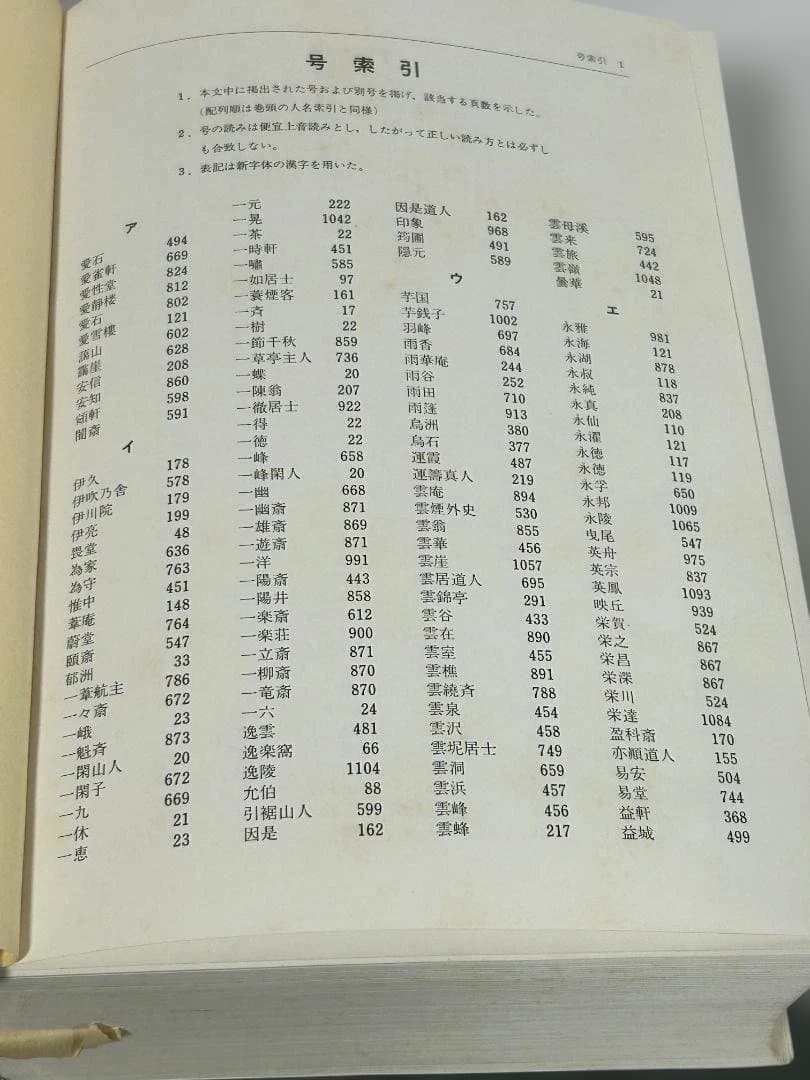 号索引 1
号索引
1. 本文中に掲出された号および別号を掲げ、該当する頁数を示した。
(配列順は巻頭の人名索引と同様)
2. 号の読みは便宜上音読みとし、したがって正しい読み方とは必ずし
も合致しない。
3. 表記は新字体の漢字を用いた。
ア
愛石 494
愛雀軒 669
愛性堂 824
愛靜楼 812
愛石 802
愛雪楼 121
藹山 602
靄崖 628
安信 208
安知 860
598
闇斎 591
イ
伊久 178
伊吹乃舎 578
伊川院 179
伊亮 199
畏堂 48
為家 636
為守 763
惟中 451
葦庵 148
蔚堂 764
頤斎 547
郁洲 33
一葦航主 786
一々斎 672
一峨 23
一魁斉 873
一閑山人 20
一閑子 672
一九 669
一休 21
一恵 23
一元 222
一晃 1042
一茶 22
一時軒 451
一嘯 585
一如居士 97
一蓑煙客 161
一斉 17
一樹 22
一節千秋 859
一草亭主人 736
一蝶 20
一陳翁 207
一徹居士 922
一得 22
一徳 22
一峰 658
一峰閑人 20
一幽 668
一幽斎 871
一雄斎 869
一遊斎 871
一洋 991
一陽斎 443
一陽井 858
一楽斎 612
一楽荘 900
一立斎 871
一柳斎 870
一竜斎 870
一六 24
逸雲 481
逸楽窩 66
逸陵 1104
允伯 88
引裾山人 599
因是 162
因是道人 162
印象 968
筠圃 491
隠元 589
ウ
芋国 757
芋銭子 1002
羽峰 697
雨香 684
雨華庵 244
雨谷 252
雨田 710
雨篷 913
烏洲 380
烏石 377
運霞 487
運籌真人 219
雲庵 894
雲煙外史 530
雲翁 855
雲華 456
雲崖 1057
雲居道人 695
雲錦亭 291
雲谷 433
雲在 890
雲室 455
雲樵 891
雲繞斉 788
雲泉 454
雲沢 458
雲坭居士 749
雲洞 659
雲浜 457
雲峰 456
雲蜂 217
雲母渓 595
雲来 724
雲旅 442
雲嶺 1048
曇華 21
エ
永雅 981
永海 121
永湖 878
永叔 118
永純 837
永真 208
永仙 110
永濯 121
永徳 117
永徳 119
永孚 650
永邦 1009
永陵 1065
曳尾 547
英舟 975
英宗 837
英鳳 1093
映丘 939
栄賀 524
栄之 867
栄昌 867
栄深 867
栄川 524
栄達 1084
盈科斎 170
亦顛道人 155
易安 504
易堂 744
益軒 368
益城 499